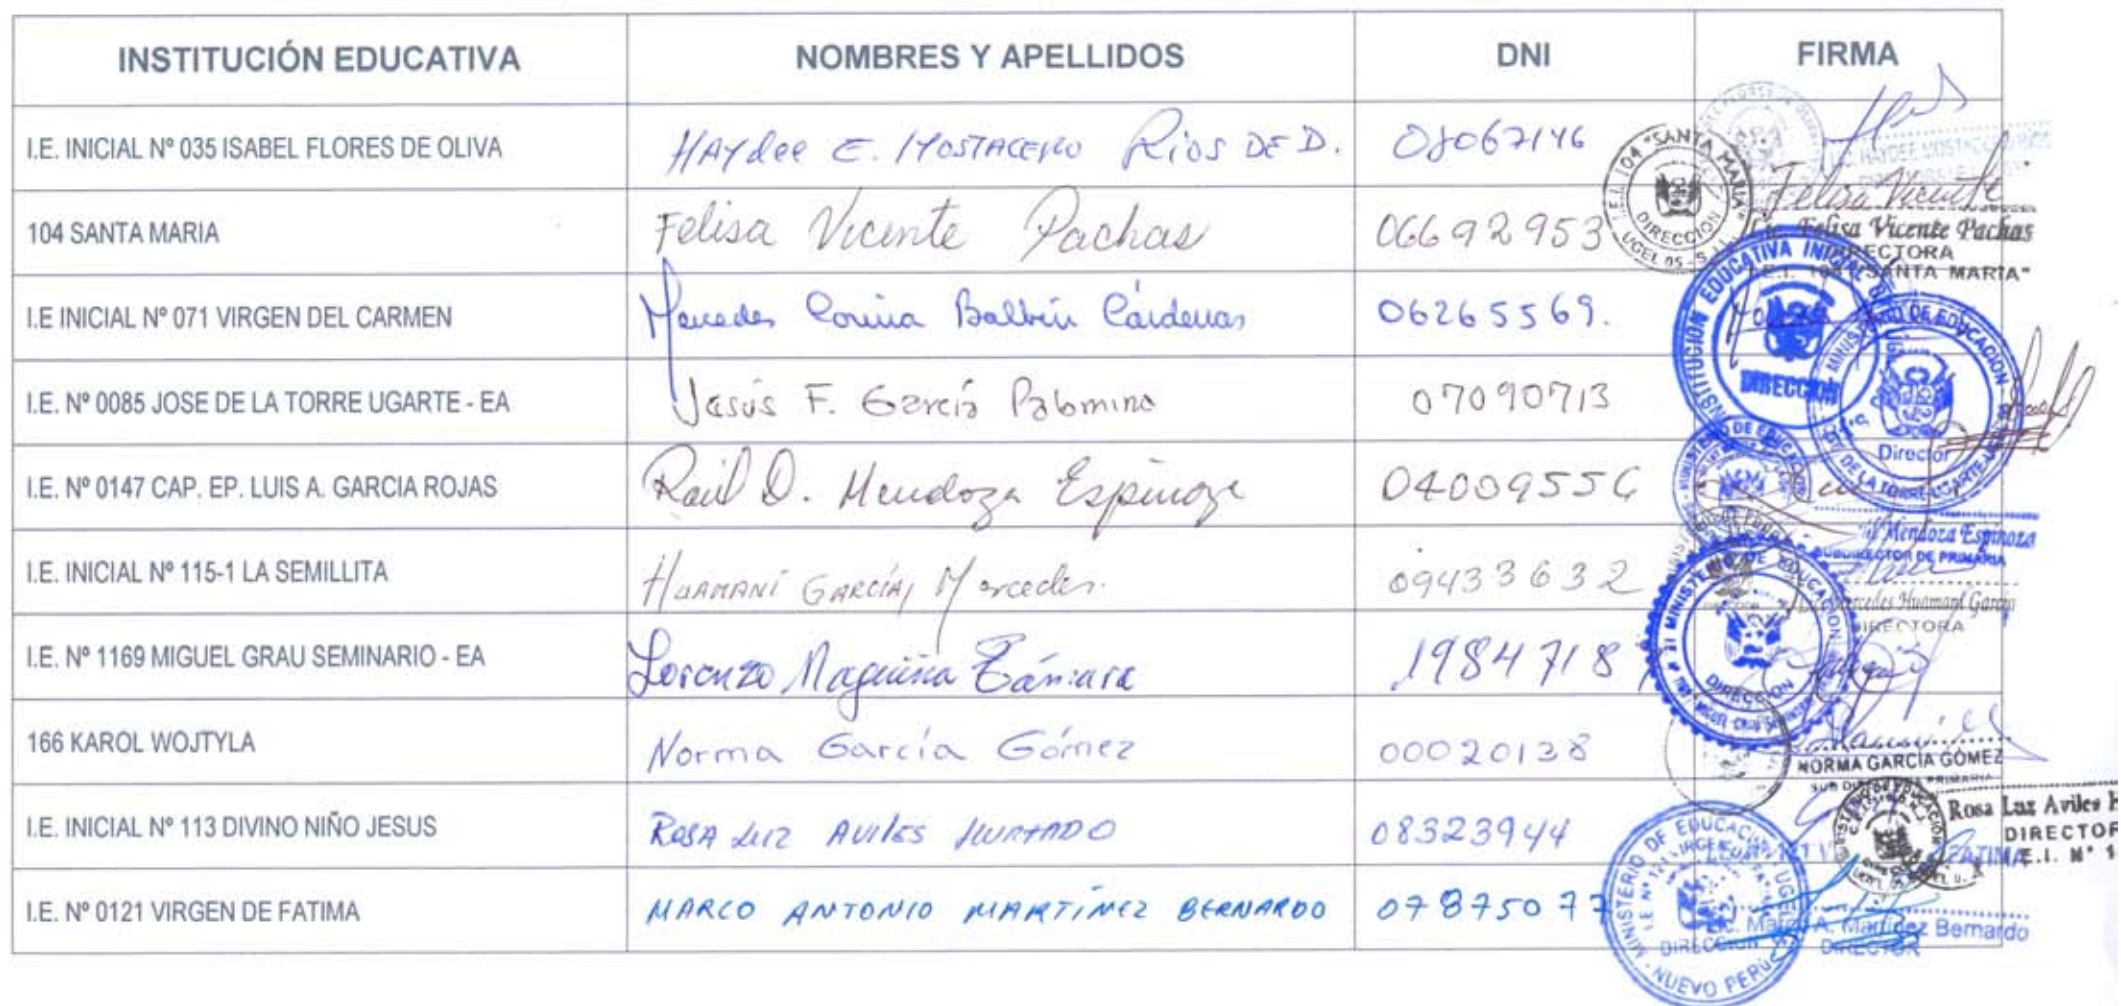 INSTITUCIÓN EDUCATIVA NOMBRES Y APELLIDOS DNI FIRMA
I.E. INICIAL Nº 035 ISABEL FLORES DE OLIVA HAYdee E. MOSTACERO Ríos DE D. 08067146
104 SANTA MARIA Felisa Vicente Pachas 06692953
I.E. 104 "SANTA MARIA" DIRECCION UGEL 05
Felisa Vicente Pachas
DIRECTORA
I.E.I. 104 "SANTA MARIA"
I.E INICIAL Nº 071 VIRGEN DEL CARMEN Mercedes Corina Balbín Cárdenas 06265569.
INSTITUCIÓN EDUCATIVA DIRECCIÓN
I.E. Nº 0085 JOSE DE LA TORRE UGARTE - EA Jesús F. García Palomino 07090713
MINISTERIO DE EDUCACIÓN Director DE LA TORRE UGARTE
I.E. Nº 0147 CAP. EP. LUIS A. GARCIA ROJAS Raúl D. Mendoza Espinoza 04009556
MINISTERIO DE EDUCACIÓN
Mendoza Espinoza
SUBDIRECTOR DE PRIMARIA
I.E. INICIAL Nº 115-1 LA SEMILLITA HUAMANÍ GARCÍA, Mercedes. 09433632
Mercedes Huamaní García
DIRECTORA
I.E. Nº 1169 MIGUEL GRAU SEMINARIO - EA Lorenzo Maguiña Támara 1984718
MINISTERIO DE EDUCACIÓN DIRECCIÓN
166 KAROL WOJTYLA Norma García Gómez 00020138
NORMA GARCÍA GÓMEZ
I.E. INICIAL Nº 113 DIVINO NIÑO JESUS ROSA LUZ AVILES HURTADO 08323944
Rosa Luz Aviles H
DIRECTOR
E.I. Nº 1
I.E. Nº 0121 VIRGEN DE FATIMA MARCO ANTONIO MARTÍNEZ BERNARDO 07875077
MINISTERIO DE EDUCACIÓN UGEL DIRECCIÓN NUEVO PERÚ
Lic. Marco A. Martínez Bernardo
DIRECTOR